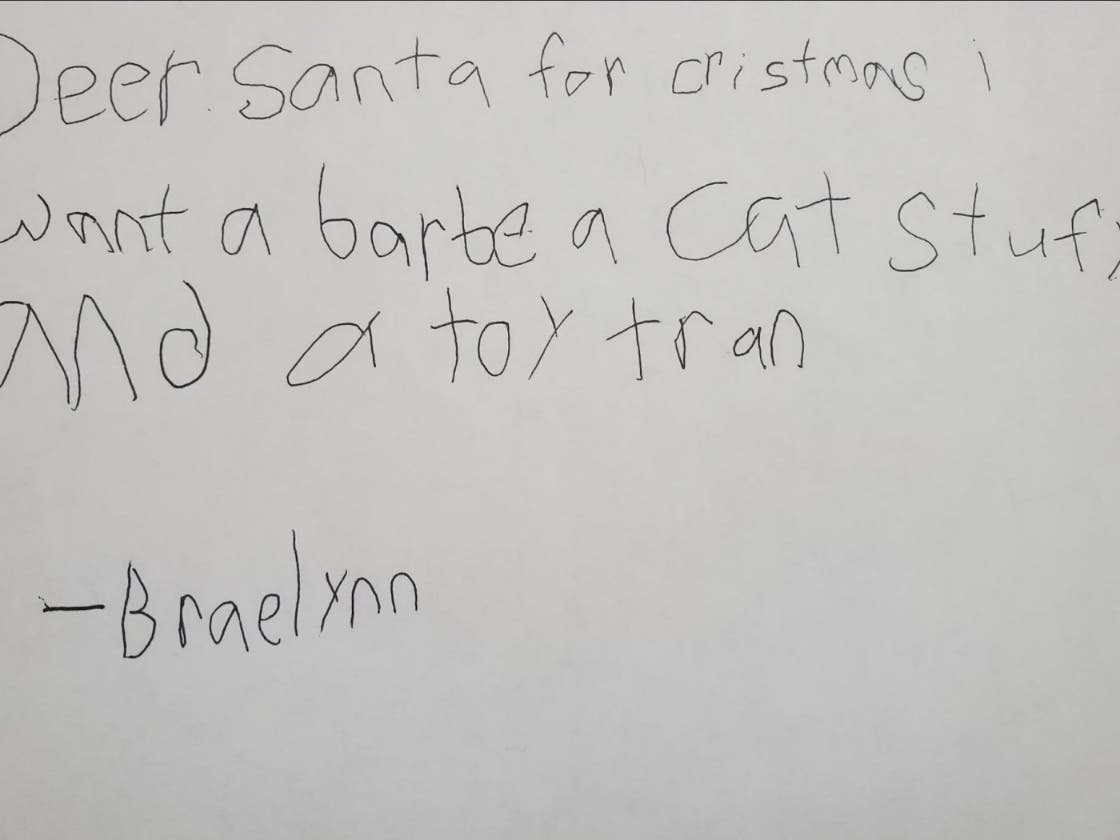 Deer Santa for cristmas i
want a barbe a Cat stuf
And a toy tran
- Braelynn